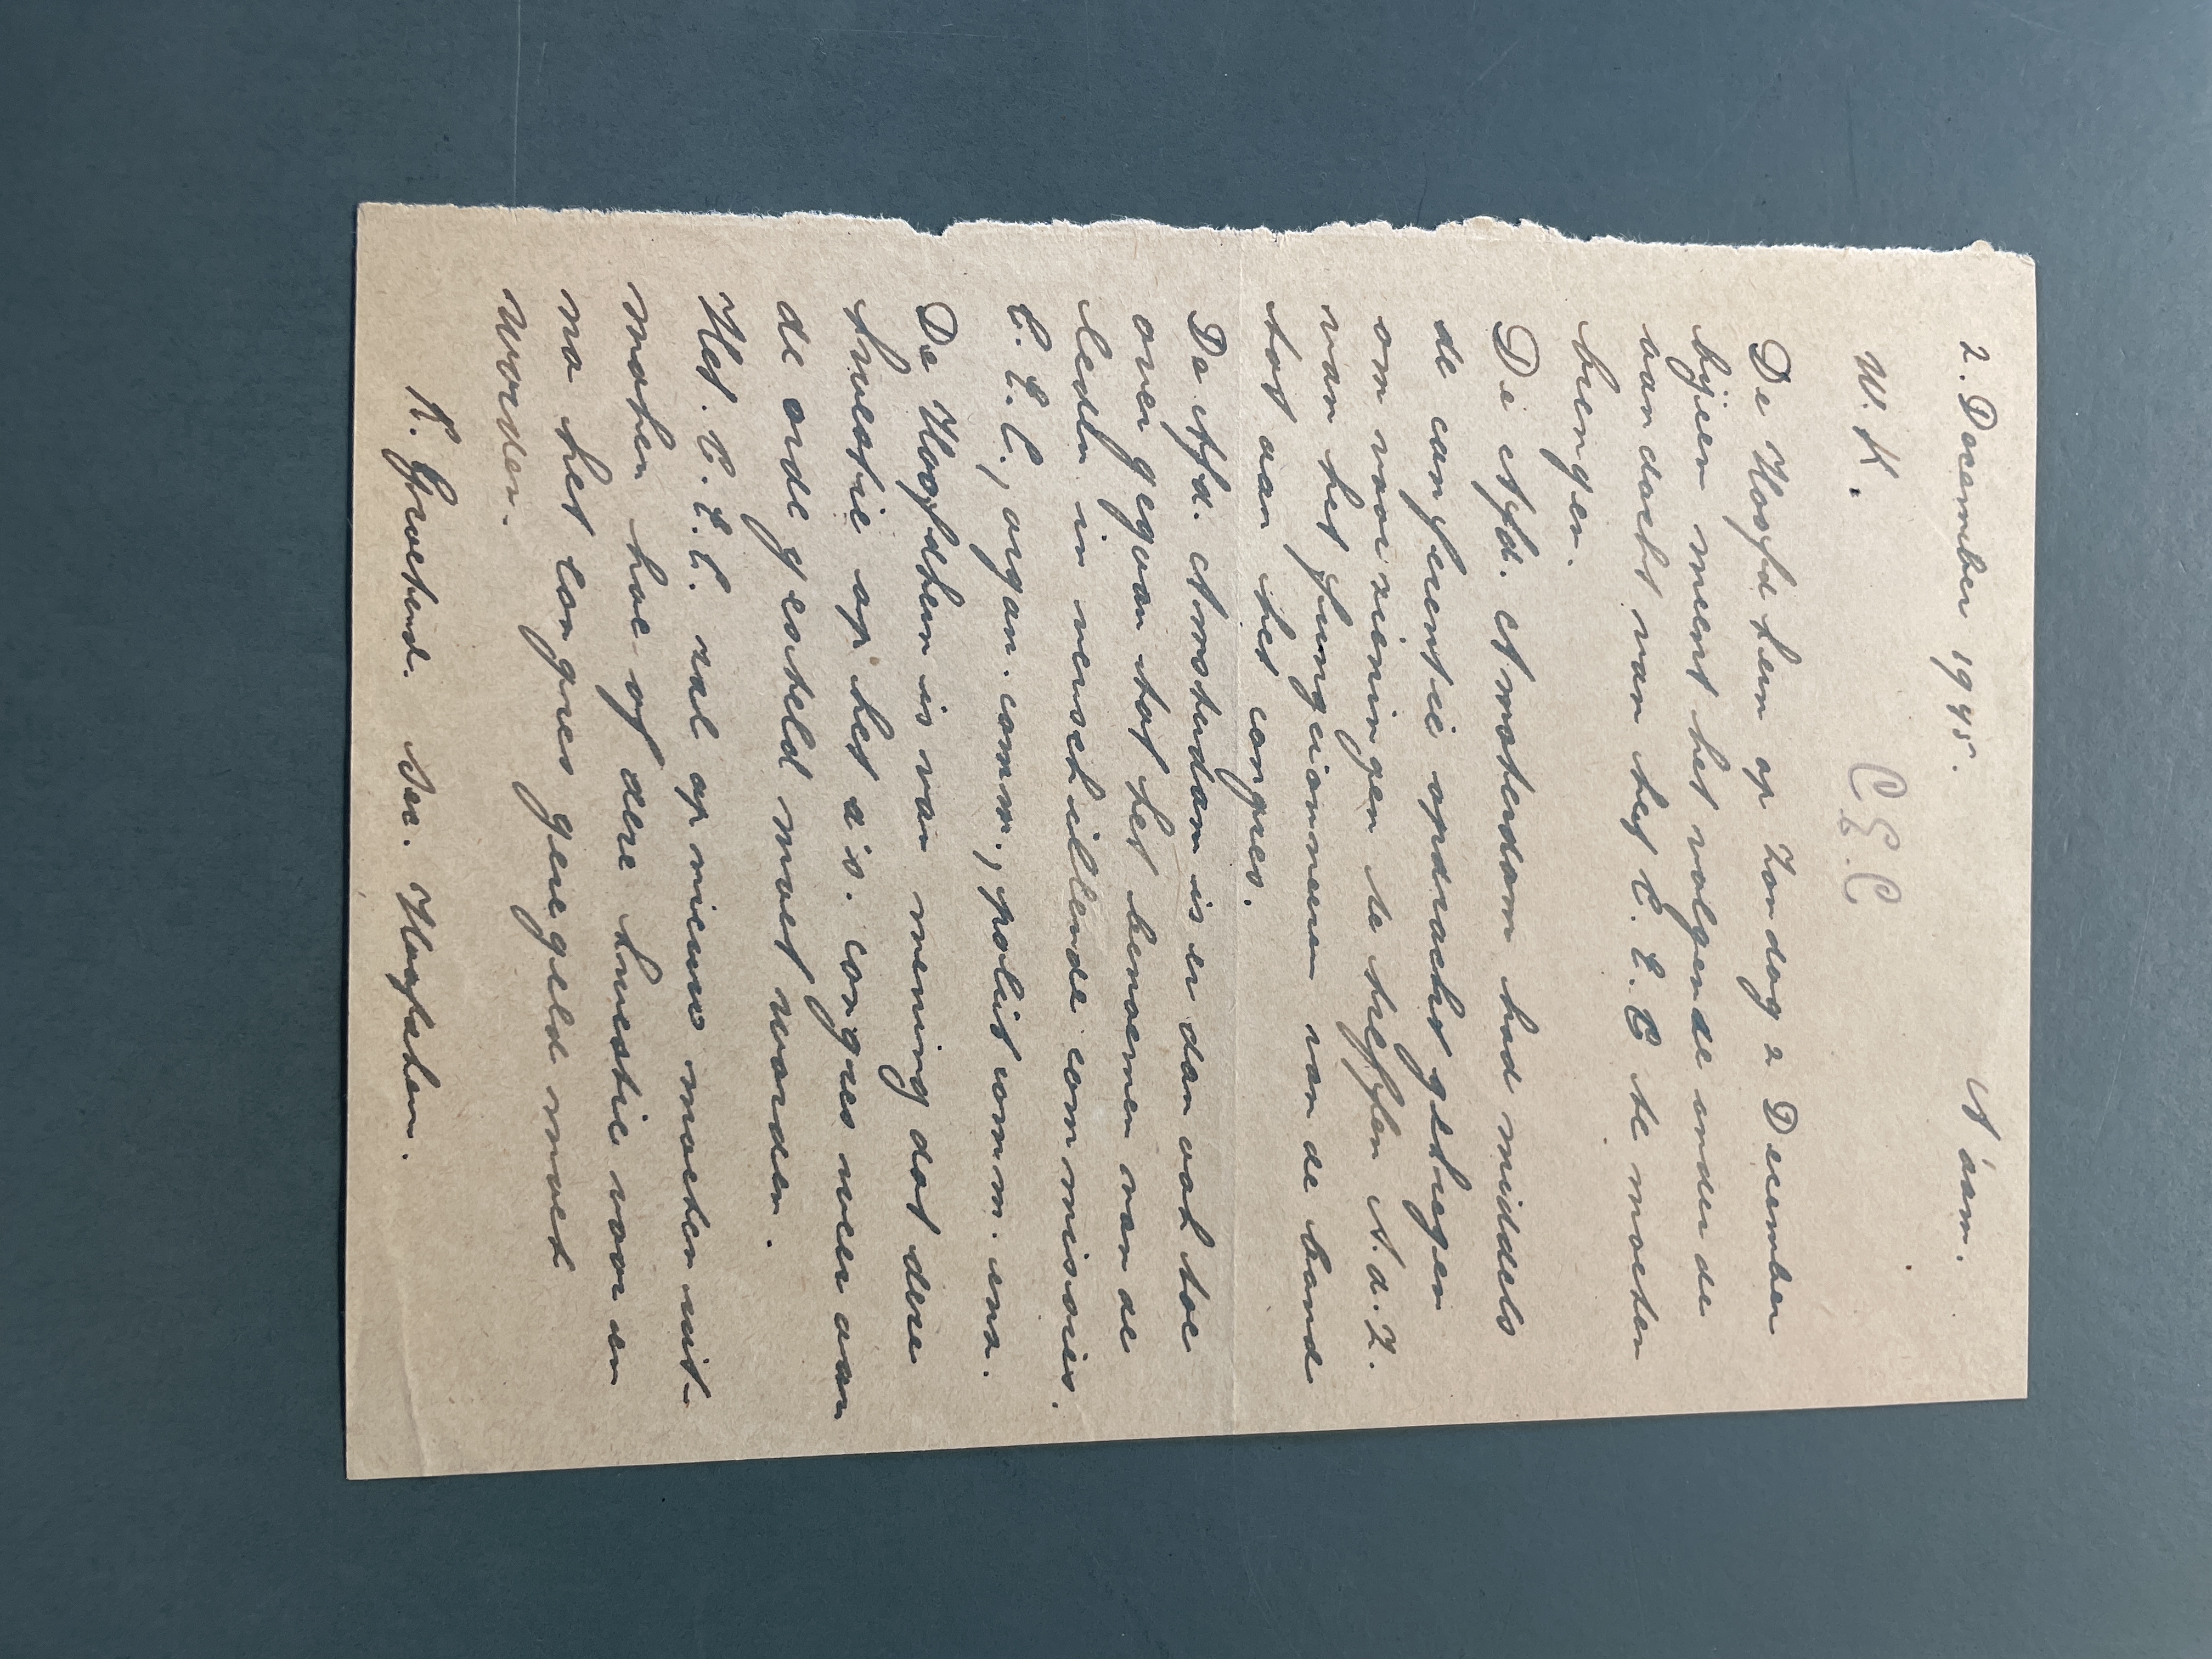 2. December 1945. A'dam.
W. K.
C.E.C
De Hoofdkern op Zondag 2 December
bijeen meent het volgende onder de
aandacht van het C. E. C te moeten
brengen.
De Afd. Amsterdam had middels
de conferentie opdracht gekregen
om voorzieningen te treffen A. d. Z.
van het fungeionneren van de bond
tot aan het congres.
De Afd. Amsterdam is er dan ook toe
over gegaan tot het benoemen van de
leden in verschillende commissies.
C. E. C., organ. comm., polit comm. enz.
De Hoofdkern is van mening dat deze
kwestie op het a.s. congres weer aan
de orde gesteld moet worden.
Het. C. E. C. zal opnieuw moeten uit-
maken hoe of deze kwestie voor en
na het congres geregeld moet
worden.
K. Grootend. Sec. Hoofdkern.